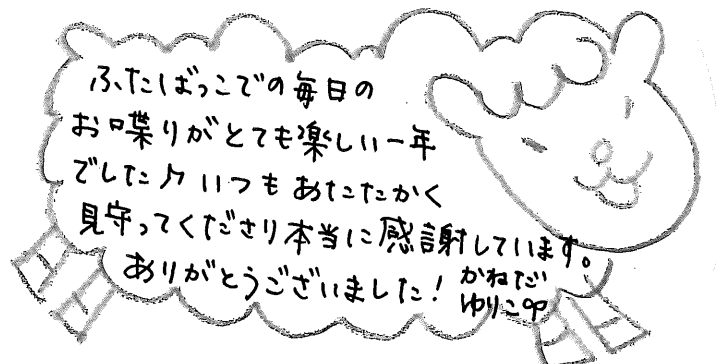 ふたばっこでの毎日の
お喋りがとても楽しい一年
でした♪いつもあたたかく
見守ってくださり本当に感謝しています。
ありがとうございました!
かねだ
ゆりこ